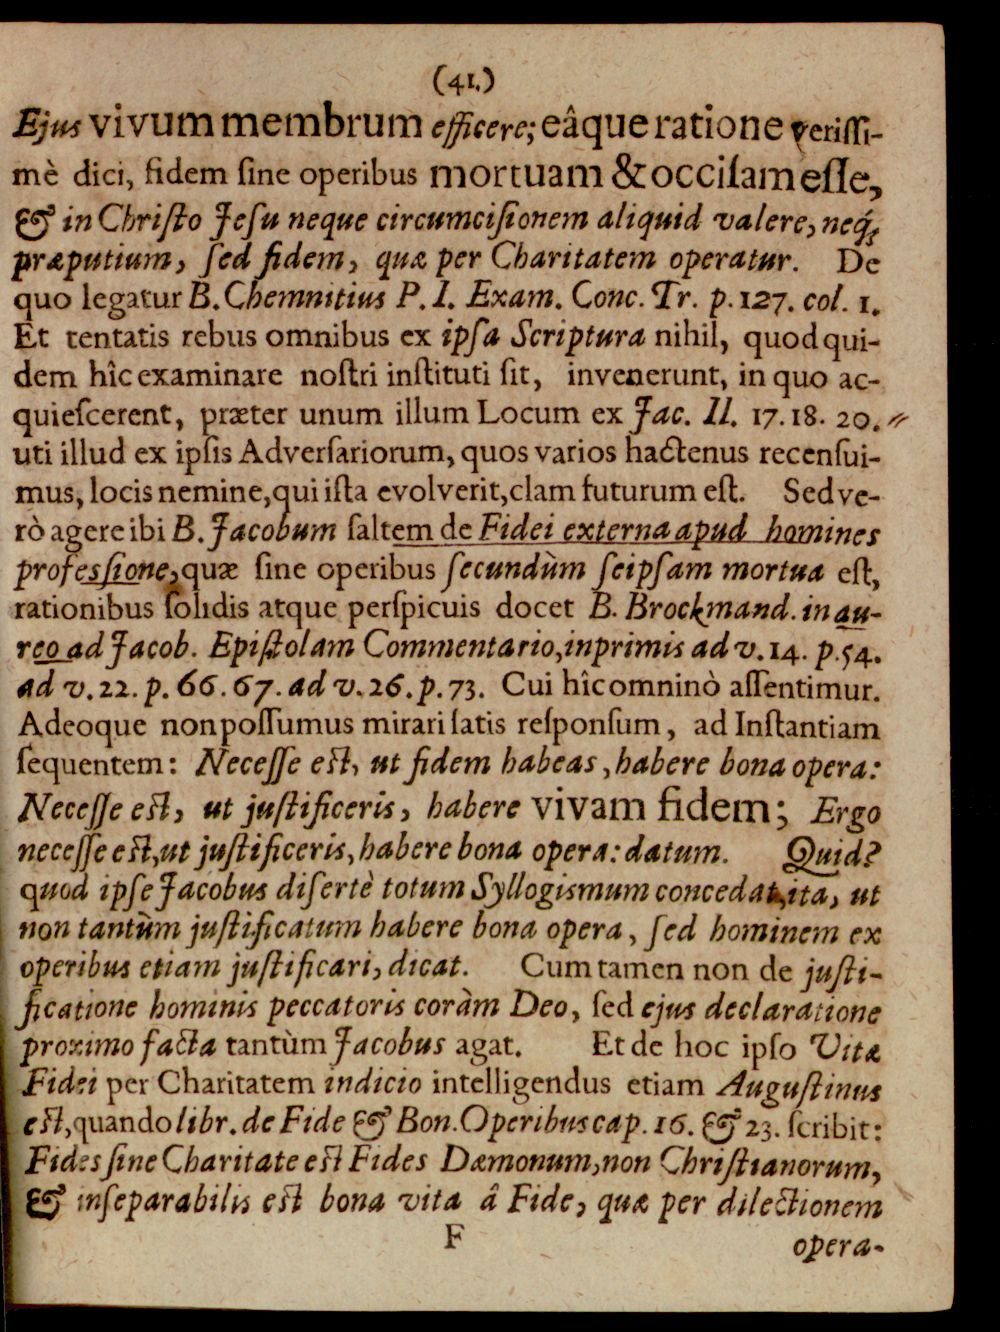 (41.)
Ejus vivum membrum efficere; eâque ratione verissi-
mè dici, fidem sine operibus mortuam & occisam esse,
& in Christo Jesu neque circumcisionem aliquid valere, neq́;
præputium, sed fidem, quæ per Charitatem operatur. De
quo legatur B. Chemnitius P. I. Exam. Conc. Tr. p. 127. col. 1.
Et tentatis rebus omnibus ex ipsa Scriptura nihil, quod qui-
dem hîc examinare nostri instituti sit, invenerunt, in quo ac-
quiescerent, præter unum illum Locum ex Jac. II. 17. 18. 20.
uti illud ex ipsis Adversariorum, quos varios hactenus recensui-
mus, locis nemine, qui ista evolverit, clam futurum est. Sed ve-
rò agere ibi B. Jacobum saltem de Fidei externa apud homines
professione, quæ sine operibus secundùm seipsam mortua est,
rationibus solidis atque perspicuis docet B. Brockmand. in au-
reo ad Jacob. Epistolam Commentario, inprimis ad v. 14. p. 54.
ad v. 22. p. 66. 67. ad v. 26. p. 73. Cui hîc omninò assentimur.
Adeoque non possumus mirari satis responsum, ad Instantiam
sequentem: Necesse est, ut fidem habeas, habere bona opera:
Necesse est, ut justificeris, habere vivam fidem; Ergo
necesse est, ut justificeris, habere bona opera: datum. Quid?
quod ipse Jacobus disertè totum Syllogismum concedat, ita, ut
non tantùm justificatum habere bona opera, sed hominem ex
operibus etiam justificari, dicat. Cum tamen non de justi-
ficatione hominis peccatoris coràm Deo, sed ejus declaratione
proximo facta tantùm Jacobus agat. Et de hoc ipso Vitæ
Fidei per Charitatem indicio intelligendus etiam Augustinus
est, quando libr. de Fide & Bon. Operibus cap. 16. & 23. scribit:
Fides sine Charitate est Fides Dæmonum, non Christianorum,
& inseparabilis est bona vita â Fide, quæ per dilectionem
F
opera-